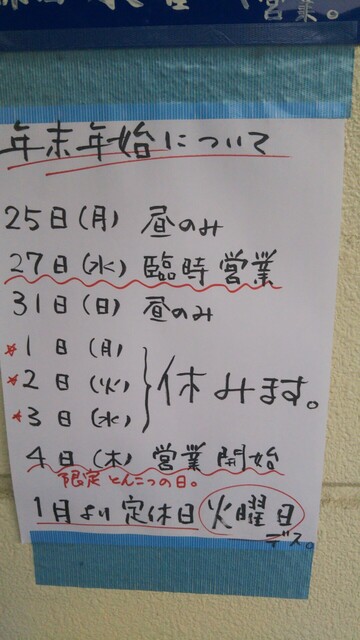 営業。
年末年始について
25日(月) 昼のみ
27日(水) 臨時営業
31日(日) 昼のみ
*1日(月)
*2日(火) 休みます。
*3日(水)
4日(木) 営業開始
限定とんこつの日。
1月より定休日 火曜日
デス。